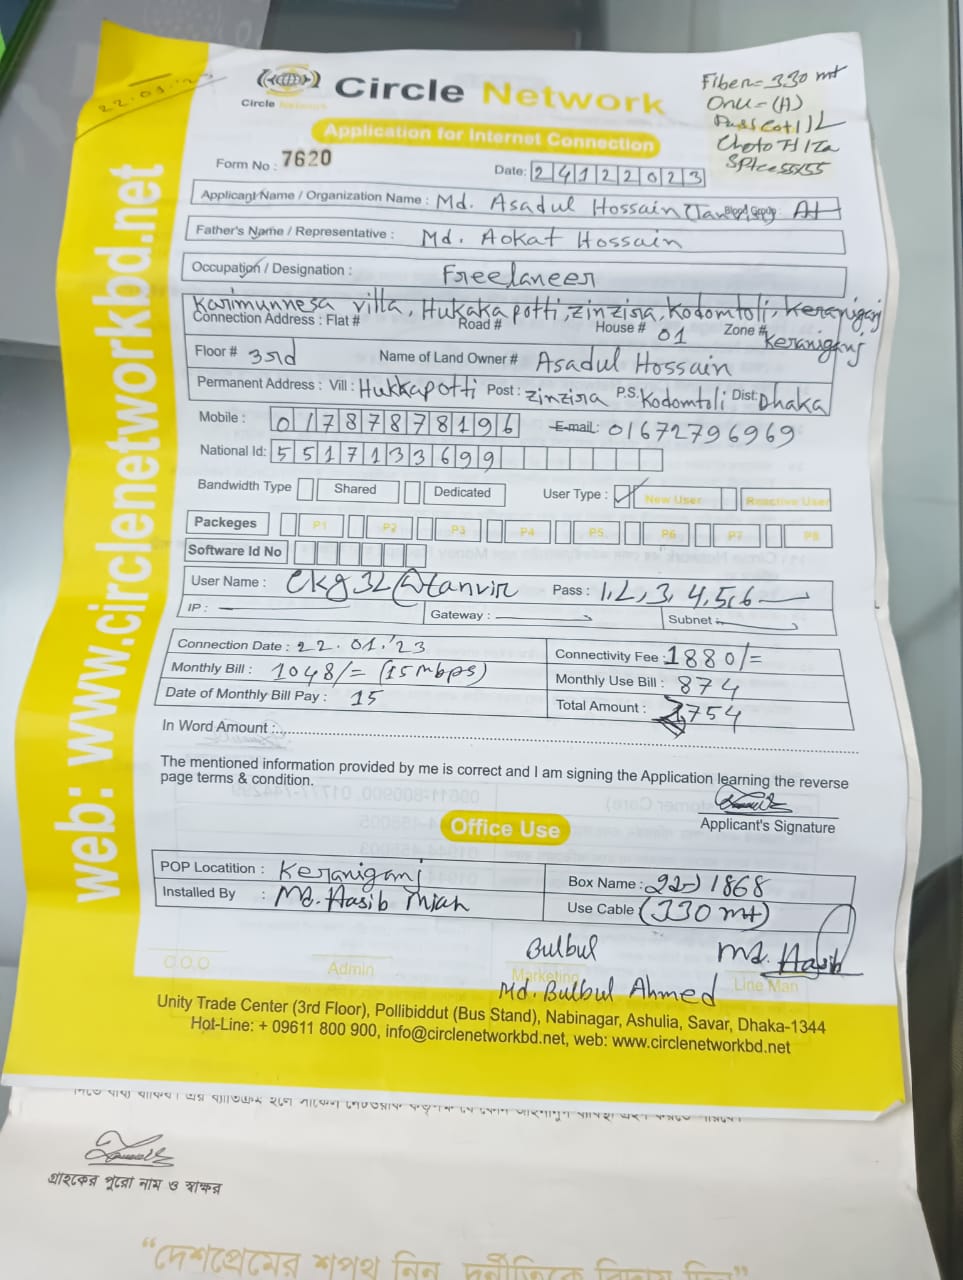 22.01.'23
Circle Network
Circle Network
Fiber = 330 mt
Onu - (A)
Choto
Splce
Application for Internet Connection
Form No : 7620
Date: 24122023
Applicant Name / Organization Name : Md. Asadul Hossain (Tanvir) Blood Group : A+
Father's Name / Representative : Md. Aokat Hossain
Occupation / Designation : Freelaneer
Karimunnesa villa, Hukaka potti, zinzira, Kodomtoli, Keraniganj
Connection Address : Flat # Road # House # 01 Zone # Keraniganj
Floor # 3rd Name of Land Owner # Asadul Hossain
Permanent Address : Vill : Hukkapotti Post : zinzira P.S. Kodomtoli Dist: Dhaka
Mobile : 01787878196 E-mail : 01672796969
National Id: 5517133699
Bandwidth Type Shared Dedicated User Type : New User Reactive User
Packeges P1 P2 P3 P4 P5 P6 P7 P8
Software Id No
User Name : ckg32@tanvir Pass : 1,2,3,4,5,6
IP : Gateway : Subnet :
Connection Date : 22.01.'23 Connectivity Fee : 1880/=
Monthly Bill : 1048/= (15 mbps) Monthly Use Bill : 874
Date of Monthly Bill Pay : 15 Total Amount : 2754
In Word Amount :
The mentioned information provided by me is correct and I am signing the Application learning the reverse
page terms & condition.
Applicant's Signature
Office Use
POP Locatition : Keraniganj Box Name : 22-) 1868
Installed By : Md. Hasib Miah Use Cable (330 mt)
Bulbul Md. Hasib
C.O.O Admin Marketing Line Man
Md. Bulbul Ahmed
Unity Trade Center (3rd Floor), Pollibiddut (Bus Stand), Nabinagar, Ashulia, Savar, Dhaka-1344
Hot-Line: + 09611 800 900, info@circlenetworkbd.net, web: www.circlenetworkbd.net
web: www.circlenetworkbd.net
গ্রাহকের পুরো নাম ও স্বাক্ষর
“দেশপ্রেমের শপথ নিন, দুর্নীতিকে বিদায় দিন”